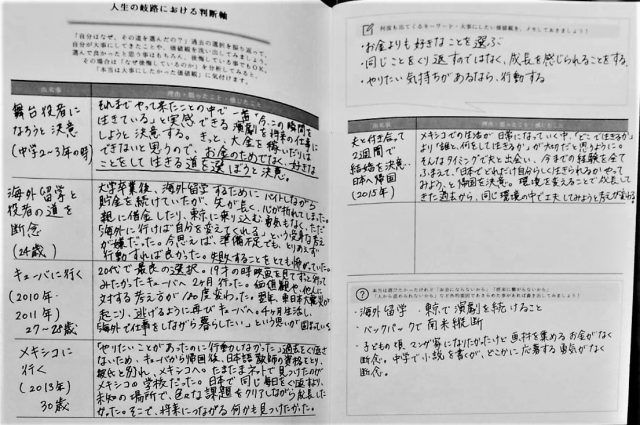 人生の岐路における判断軸
「自分はなぜ、その道を選んだの？」過去の選択を振り返って、
自分が大事にしてきたことや、価値観を洗い出してみましょう。
選んで良かったと思う事はもちろん、後悔している事でもOK。
その場合は「なぜ後悔しているのか」を分析してみると、
「本当は大事にしたかった価値観」に気付けます。
出来事
理由・思ったこと・感じたこと
舞台役者に
なろうと決意
(中学2〜3年の時)
それまでやって来たことの中で一番"今、この瞬間を
生きている"と実感できる演劇を将来の仕事に
しようと決意する。きっと、大金を稼いだりは
できないと思うので、お金のためでなく、好きな
ことをして生きる道を選ぼうと決意。
海外留学と
役者の道を
断念
(24歳)
大学卒業後、海外留学するためにバイトしながら
貯金を続けていたが、先が長く、心が折れてしまった。
親に借金したり、東京に乗り込む勇気もなく、ただ
"海外に行けば自分を変えてくれる"という受身な考え
が嫌だった。今思えば、準備不足でも、とりあえず
行動すれば良かった。失敗することをとても怖がっていた。
キューバに行く
(2010年・
2011年)
27-28歳
20代で最良の選択。19才の時映画を見てずっと行って
みたかったキューバへ2ヶ月行った。価値観や他人に
対する考え方が180度変わった。翌年、東日本大震災が
起こり、逃げるように再びキューバへ。4ヶ月生活し、
"海外で仕事をしながら暮らしたい"という思いが固まる
メキシコに
行く
(2013年)
30歳
「やりたいことがあったのに行動しなかった」過去をくり返さ
ないため、キューバから帰国後、日本語教師の資格をとり、
彼氏と別れ、メキシコへ。たまたまネットで見つけたのが
メキシコの学校だった。日本で同じ毎日をくり返すより、
未知の場所で、色々な課題をクリアしながら成長した
かった。そこで、将来につながる何かも見つけたかった。
何度も出てくるキーワード・大事にしたい価値観を、メモしておきましょう！
・お金よりも好きなことを選ぶ
・同じことをくり返すのではなく、成長を感じられることをする。
・やりたい気持ちがあるなら、行動する
出来事
理由・思ったこと・感じたこと
夫と付き合って
2週間で
結婚を決意、
日本へ帰国
(2015年)
メキシコでの生活が日常になっていく中、「どこで生きるか」
より「誰と、何をして生きるか」が大切だと思うように。
そんなタイミングで夫と出会い、今までの経験を全て
ふまえて、「日本でどれだけ自分らしく生きられるかやって
みよう」と帰国を決意。環境を変えることで成長して
きた過去から、同じ環境の中で工夫してみようと考えが変わる
本当は選びたかったけれど「お金にならないから」「将来に繋がらないから」
「人から認められないから」など外的要因であきらめた事があれば書き出してみましょう！
・海外留学・東京で演劇を続けること
・バックパックで南米縦断
・子どもの頃マンガ家になりたかったけど画材を集めるお金がなく
断念。中学で小説を書くが、どこかに応募する勇気がなく
断念。